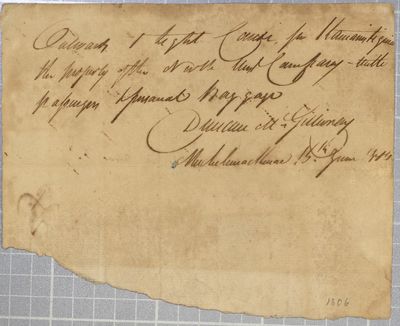 Outwards 1 light Canoe for Kamanistiguia
the property of the North West Company with
passengers & personal Baggage
Duncan McGillivray
Michilimackinac 15th June
1806